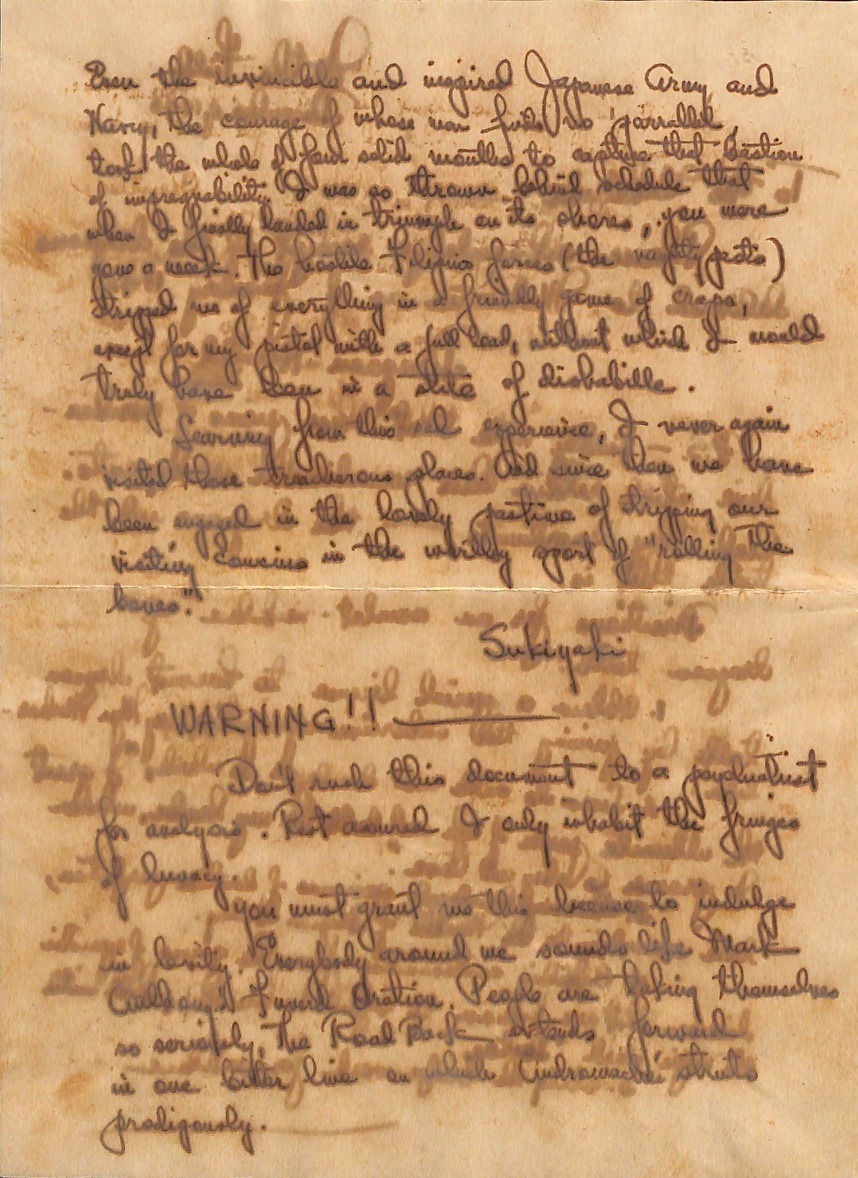 Even the invincible and inspired Japanese Army and
Navy, the courage of whose men finds no parrallel,
took the whole of four solid months to capture that bastion
of impregnability. I was so thrown behind schedule that
when I finally landed in triumph on its shores, you were
gone a week. The hostile Filipino forces (the naughty pests)
stripped me of everything in a friendly game of craps,
except for my pistol with a full load, without which I would
truly have been in a state of dishabille.
Learning from this sad experience, I never again
visited those treacherous places. And since then we have
been engaged in the lovely pastime of stripping our
visiting cousins in the worldly sport of "rolling the
bones".
Sukiyaki
WARNING!!
Don't rush this document to a psychiatrist
for analysis. Rest assured I only inhabit the fringes
of lunacy.
You must grant me this license to indulge
in levity. Everybody around me sounds like Mark
Anthony's Funeral Oration. People are taking themselves
so seriously, the Road Back extends forward
in one bitter line on which Andromache struts
prodigously.